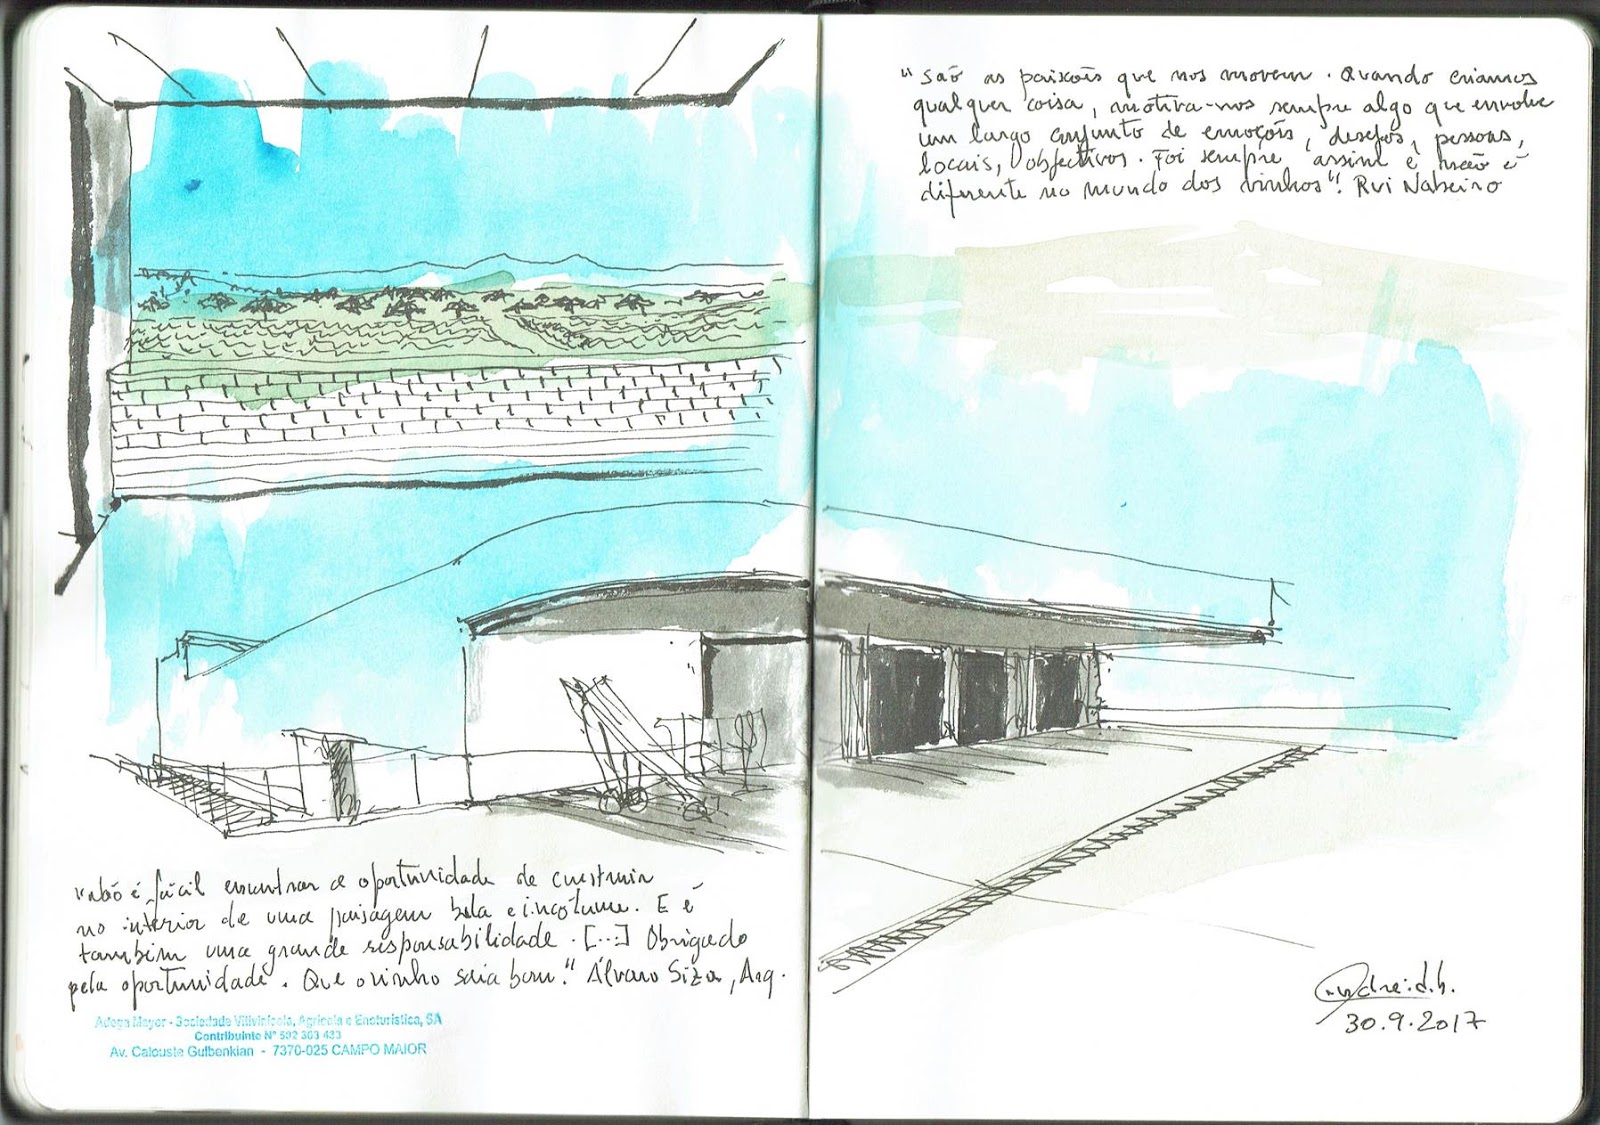 "São as paixões que nos movem. Quando criamos
qualquer coisa, motiva-nos sempre algo que envolve
um largo conjunto de emoções, desejos, pessoas,
locais, objectivos. Foi sempre assim e não é
diferente no mundo dos vinhos". Rui Nabeiro
"Não é fácil encontrar a oportunidade de construir
no interior de uma paisagem bela e incólume. E é
também uma grande responsabilidade. [...] Obrigado
pela oportunidade. Que o vinho saia bom." Álvaro Siza, Arq.
Adega Mayor - Sociedade Vitivinícola, Agrícola e Enoturística, SA
Contribuinte Nº 502 303 433
Av. Calouste Gulbenkian - 7370-025 CAMPO MAIOR
30.9.2017